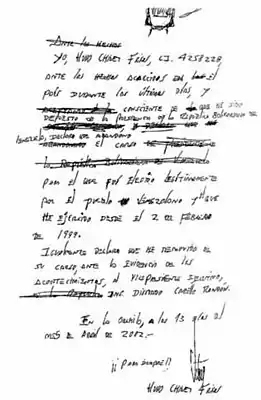 Ante los hechos
Yo, Hugo Chávez Frías, C.I. 4258228,
ante los hechos acaecidos en el
país durante los últimos días, y
consciente de que he sido
depuesto de la presidencia de la República Bolivariana de
Venezuela, declaro que abandono
el cargo de Presidente
la República
para el que fui electo legítimamente
por el pueblo venezolano y que
he ejercido desde el 2 de febrero
de 1999.
Igualmente declaro que he removido de
su cargo, ante la evidencia de los
acontecimientos, al Vicepresidente Ejecutivo,
Ing. Diosdado Cabello Rondón.
En la Orchila, a los 13 días del
mes de Abril de 2002.-
¡¡Para siempre!!
Hugo Chávez Frías